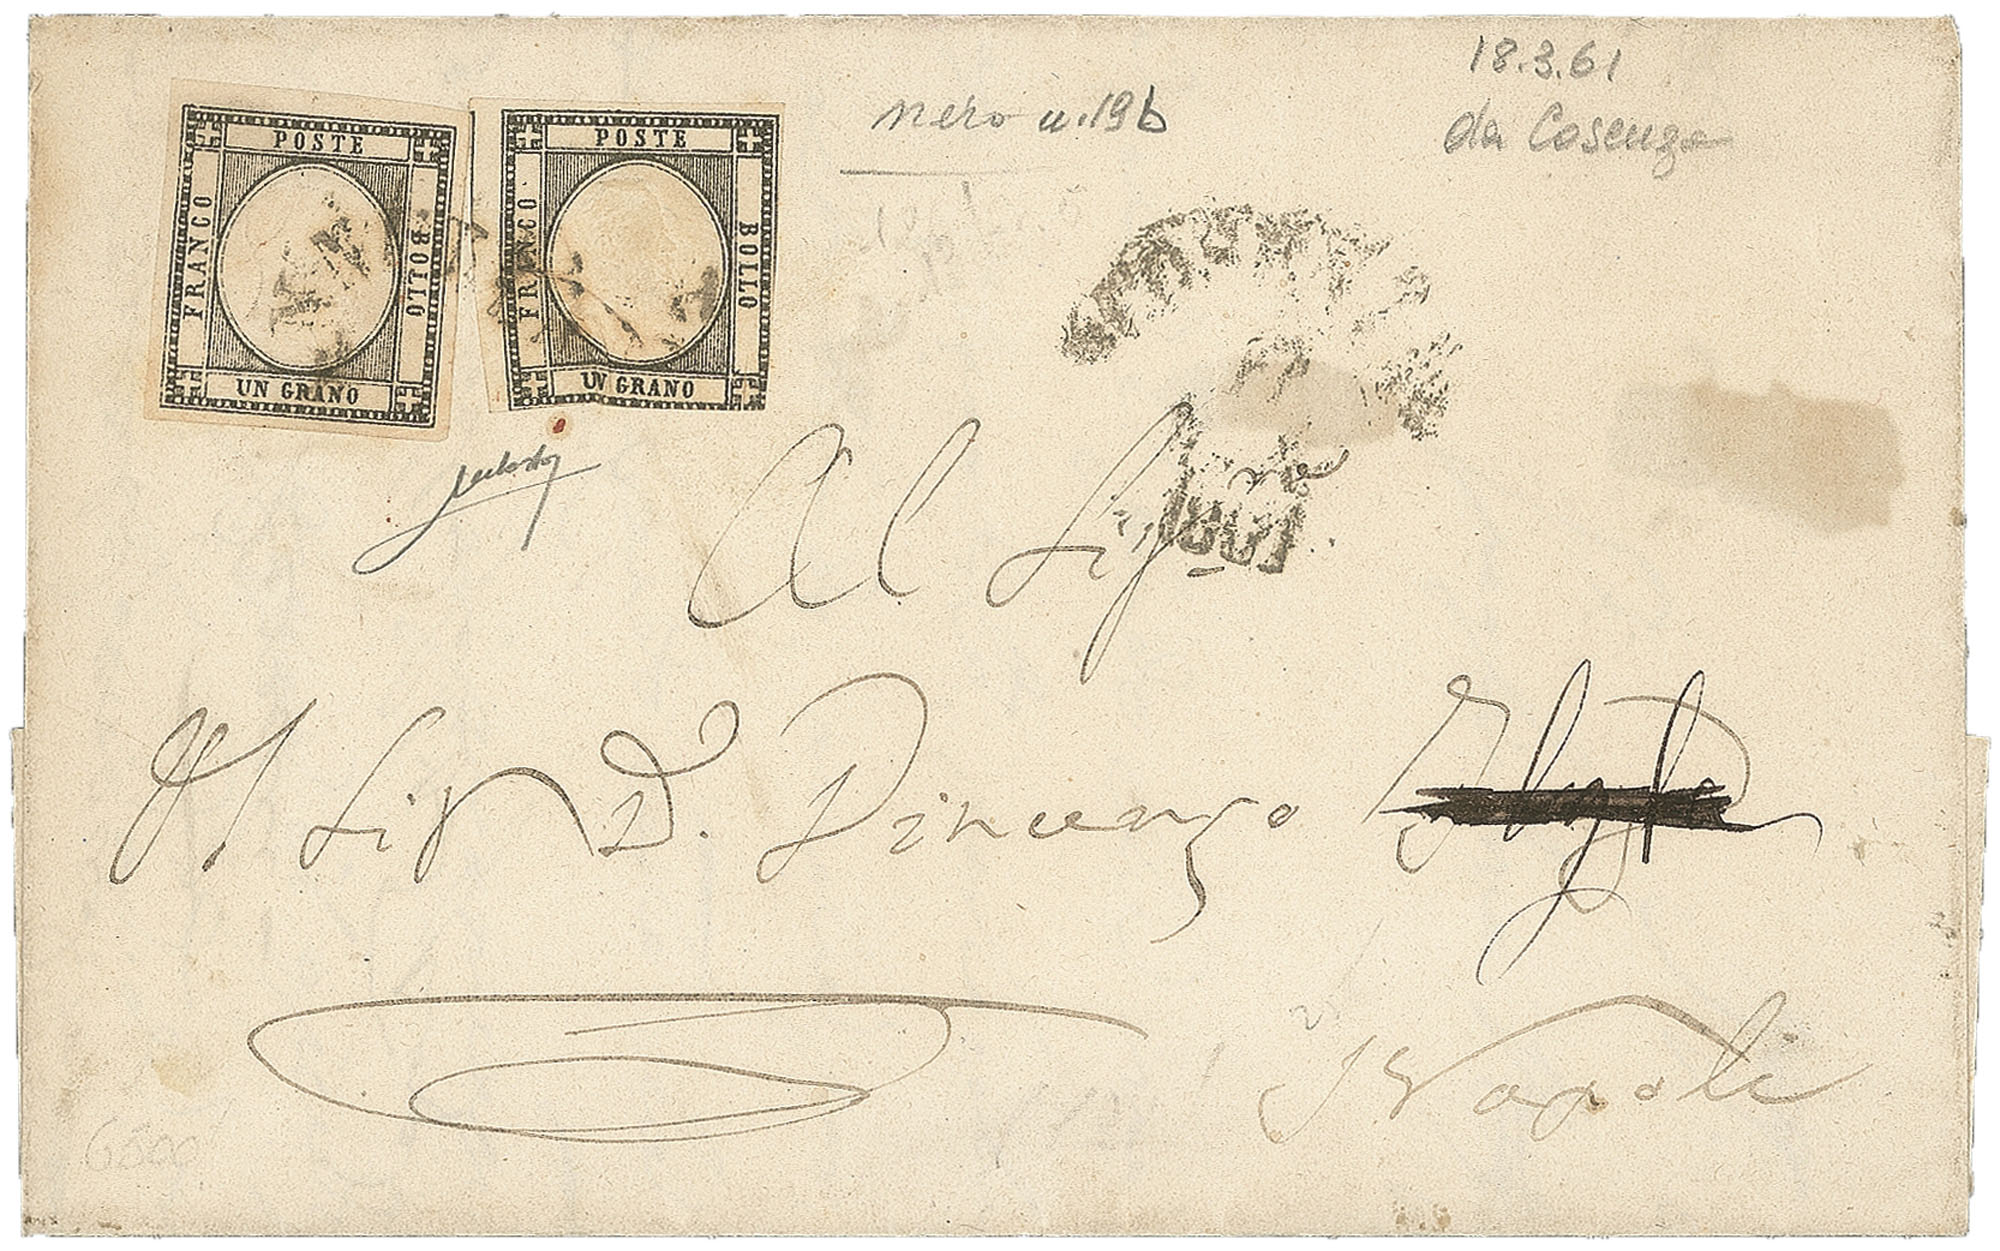 18.3.61
da Cosenza
nero n. 19b
POSTE
FRANCO
BOLLO
UN GRANO
POSTE
FRANCO
BOLLO
UN GRANO
1861
Al Sig.re
Al Sig. D. Vincenzo
Napoli
6500